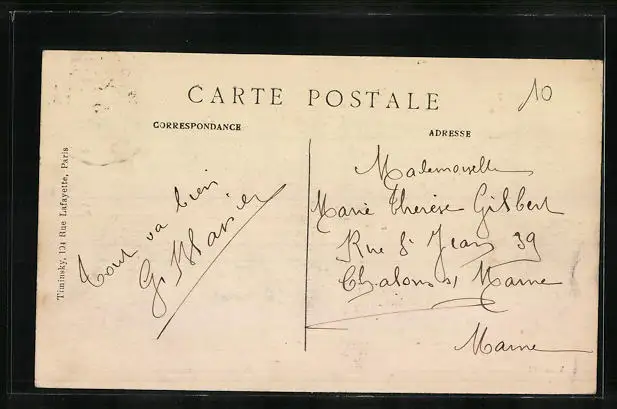 CARTE POSTALE
10
CORRESPONDANCE
ADRESSE
Timinsky, 104 Rue Lafayette, Paris
Tout va bien
G.
Mademoiselle
Marie Therese Gilbert
Rue St Jean 39
Chalons s/ Marne
Marne